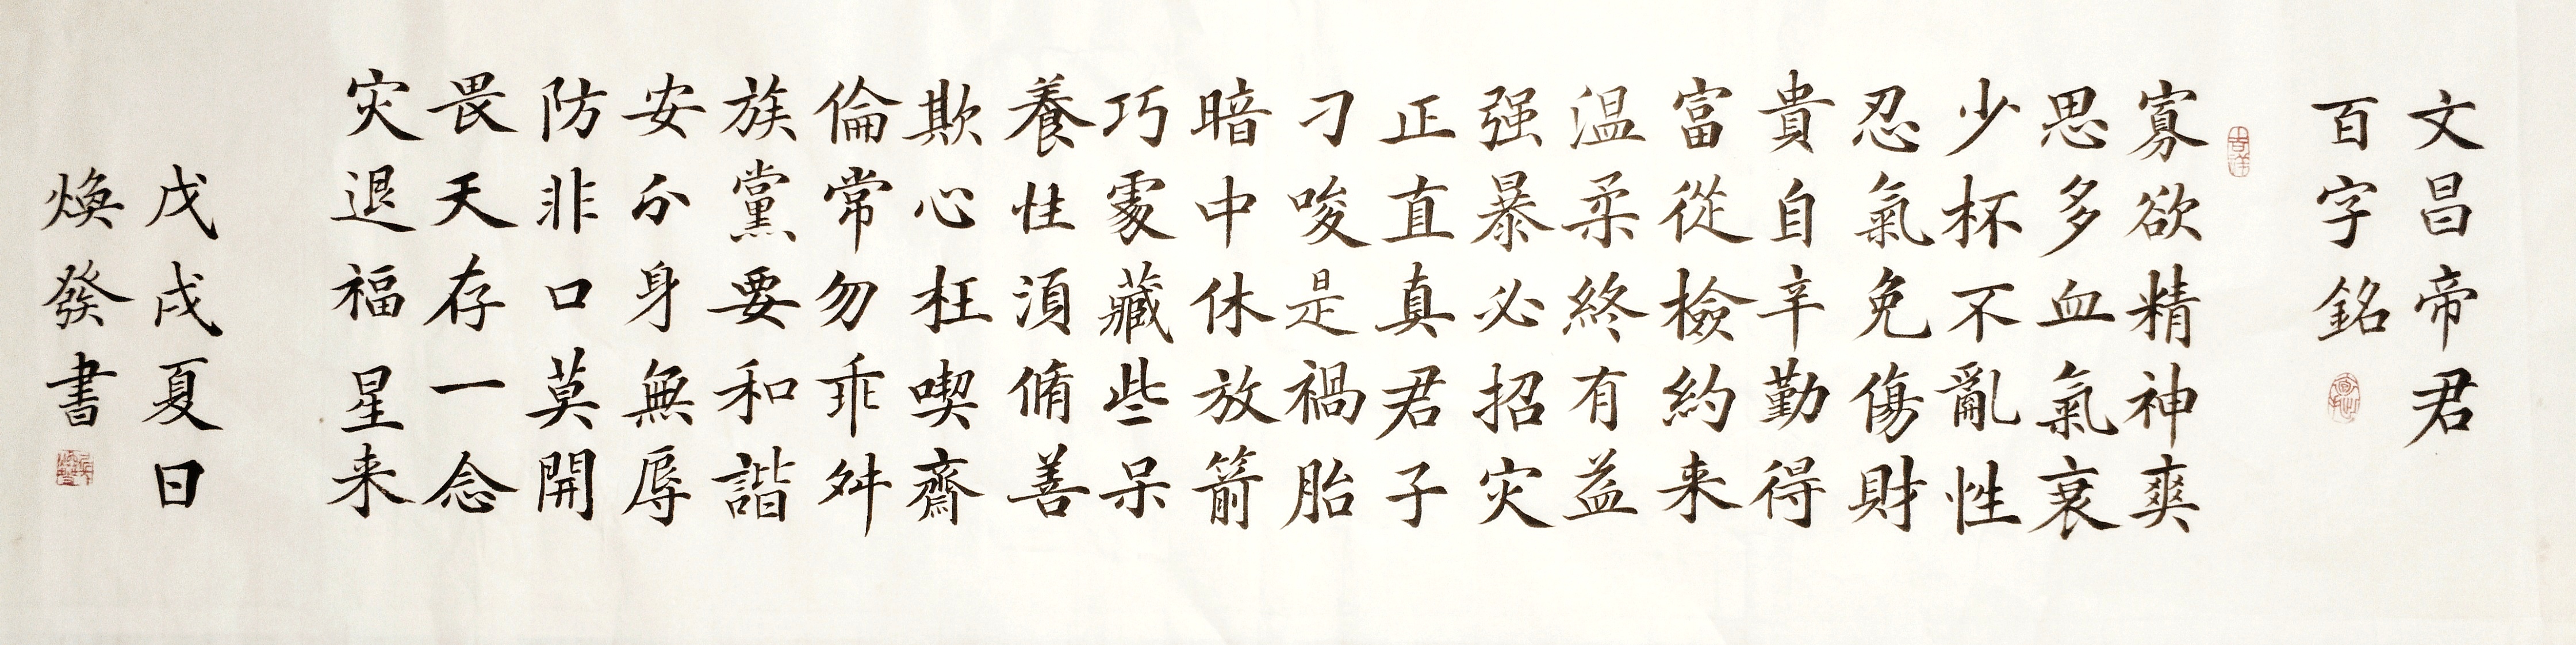 文昌帝君
百字銘
寡欲精神爽
思多血氣衰
少杯不亂性
忍氣免傷財
貴自辛勤得
富從檢約来
温柔終有益
强暴必招灾
正直真君子
刁唆是禍胎
暗中休放箭
巧處藏些呆
養性須脩善
欺心枉喫齋
倫常勿乖舛
族黨要和諧
安分身無辱
防非口莫開
畏天存一念
灾退福星来
戊戌夏日
焕發書